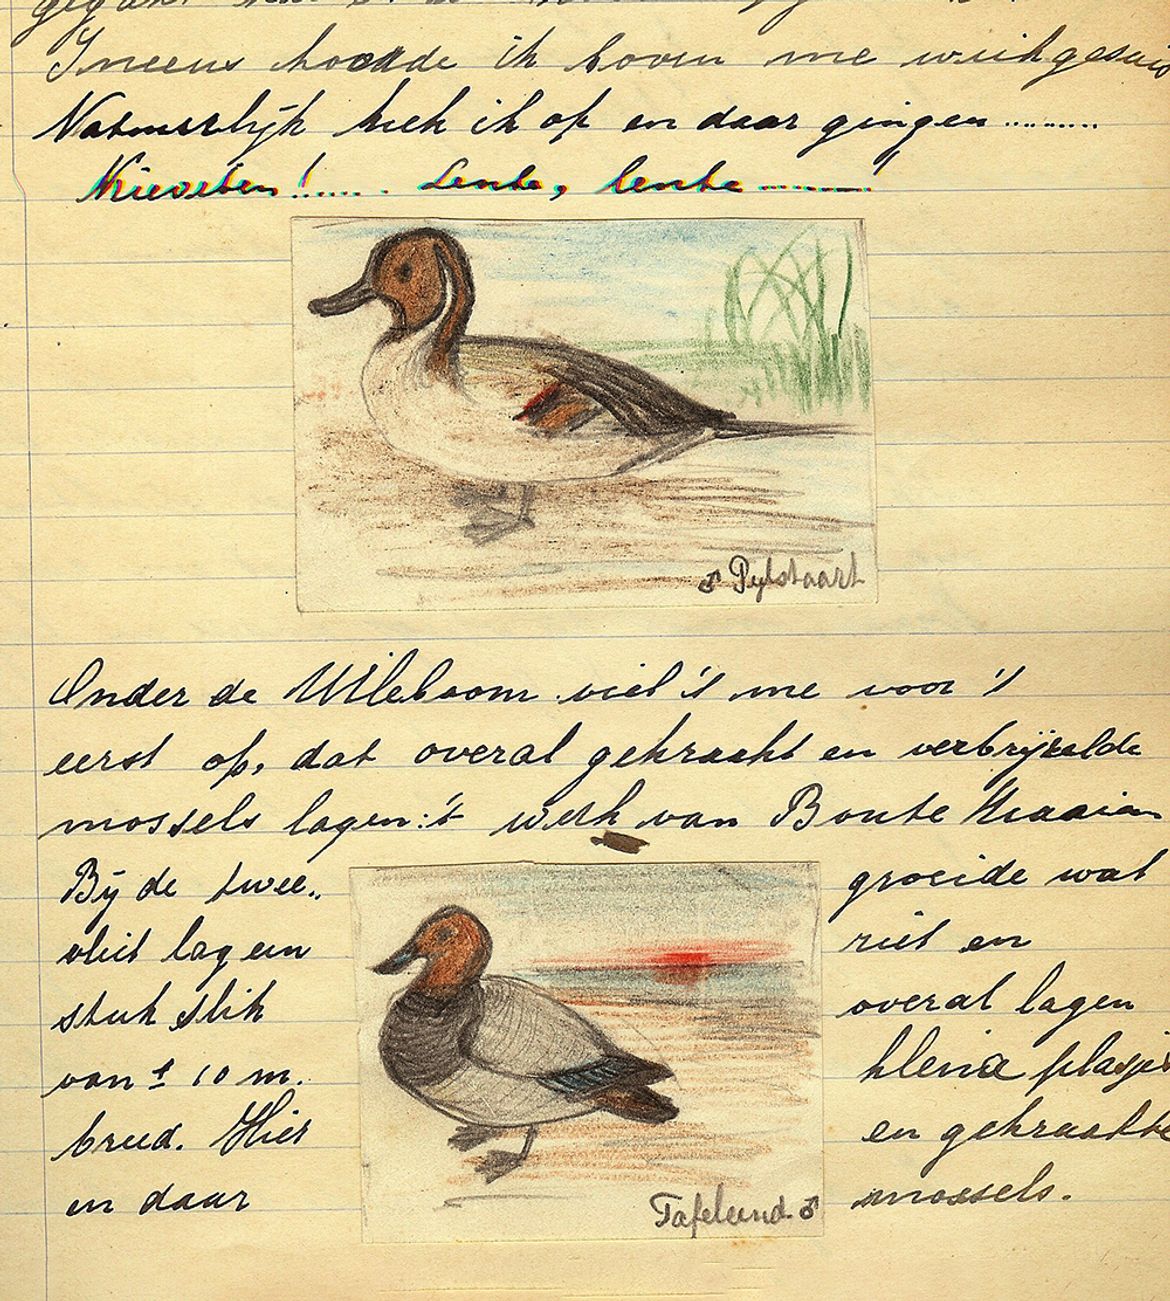 Ineens hoorde ik boven me wiekgesuis
Natuurlijk keek ik op en daar gingen .........
Kieviten!..... Lente, lente ........!
♂ Pylstaart
Onder de Uileboom viel 't me voor 't
eerst op, dat overal gekraakt en verbrijzelde
mossels lagen: 't werk van Bonte Kraaien
Bij de twee..
vliet lag een
stuk slik
van ± 10 m.
breed. Hier
en daar
groeide wat
riet en
overal lagen
kleine plasjes
en gekraakte
mossels.
Tafeleend ♂